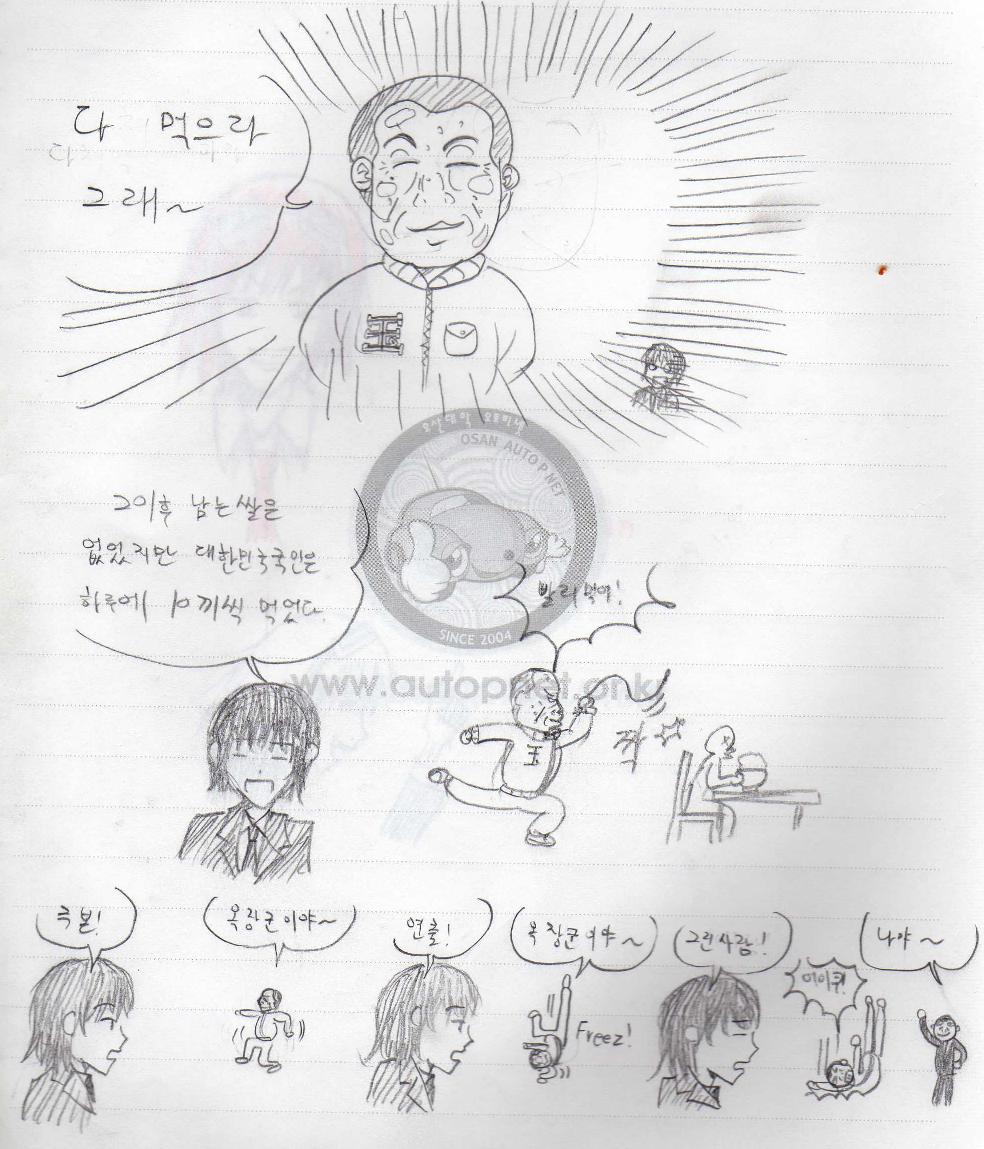 다 먹으라
그래~
오산대학 오토피넷
OSAN AUTO P NET
SINCE 2004
www.autopnet.or.kr
그이후 남는쌀은
없었지만 대한민국국인은
하루에 10끼씩 먹었다.
빨리먹어!
짝
극본!
옥장군이야~
연출!
옥장군이야~
Freez!
그린사람!
아이쿠!
나야~